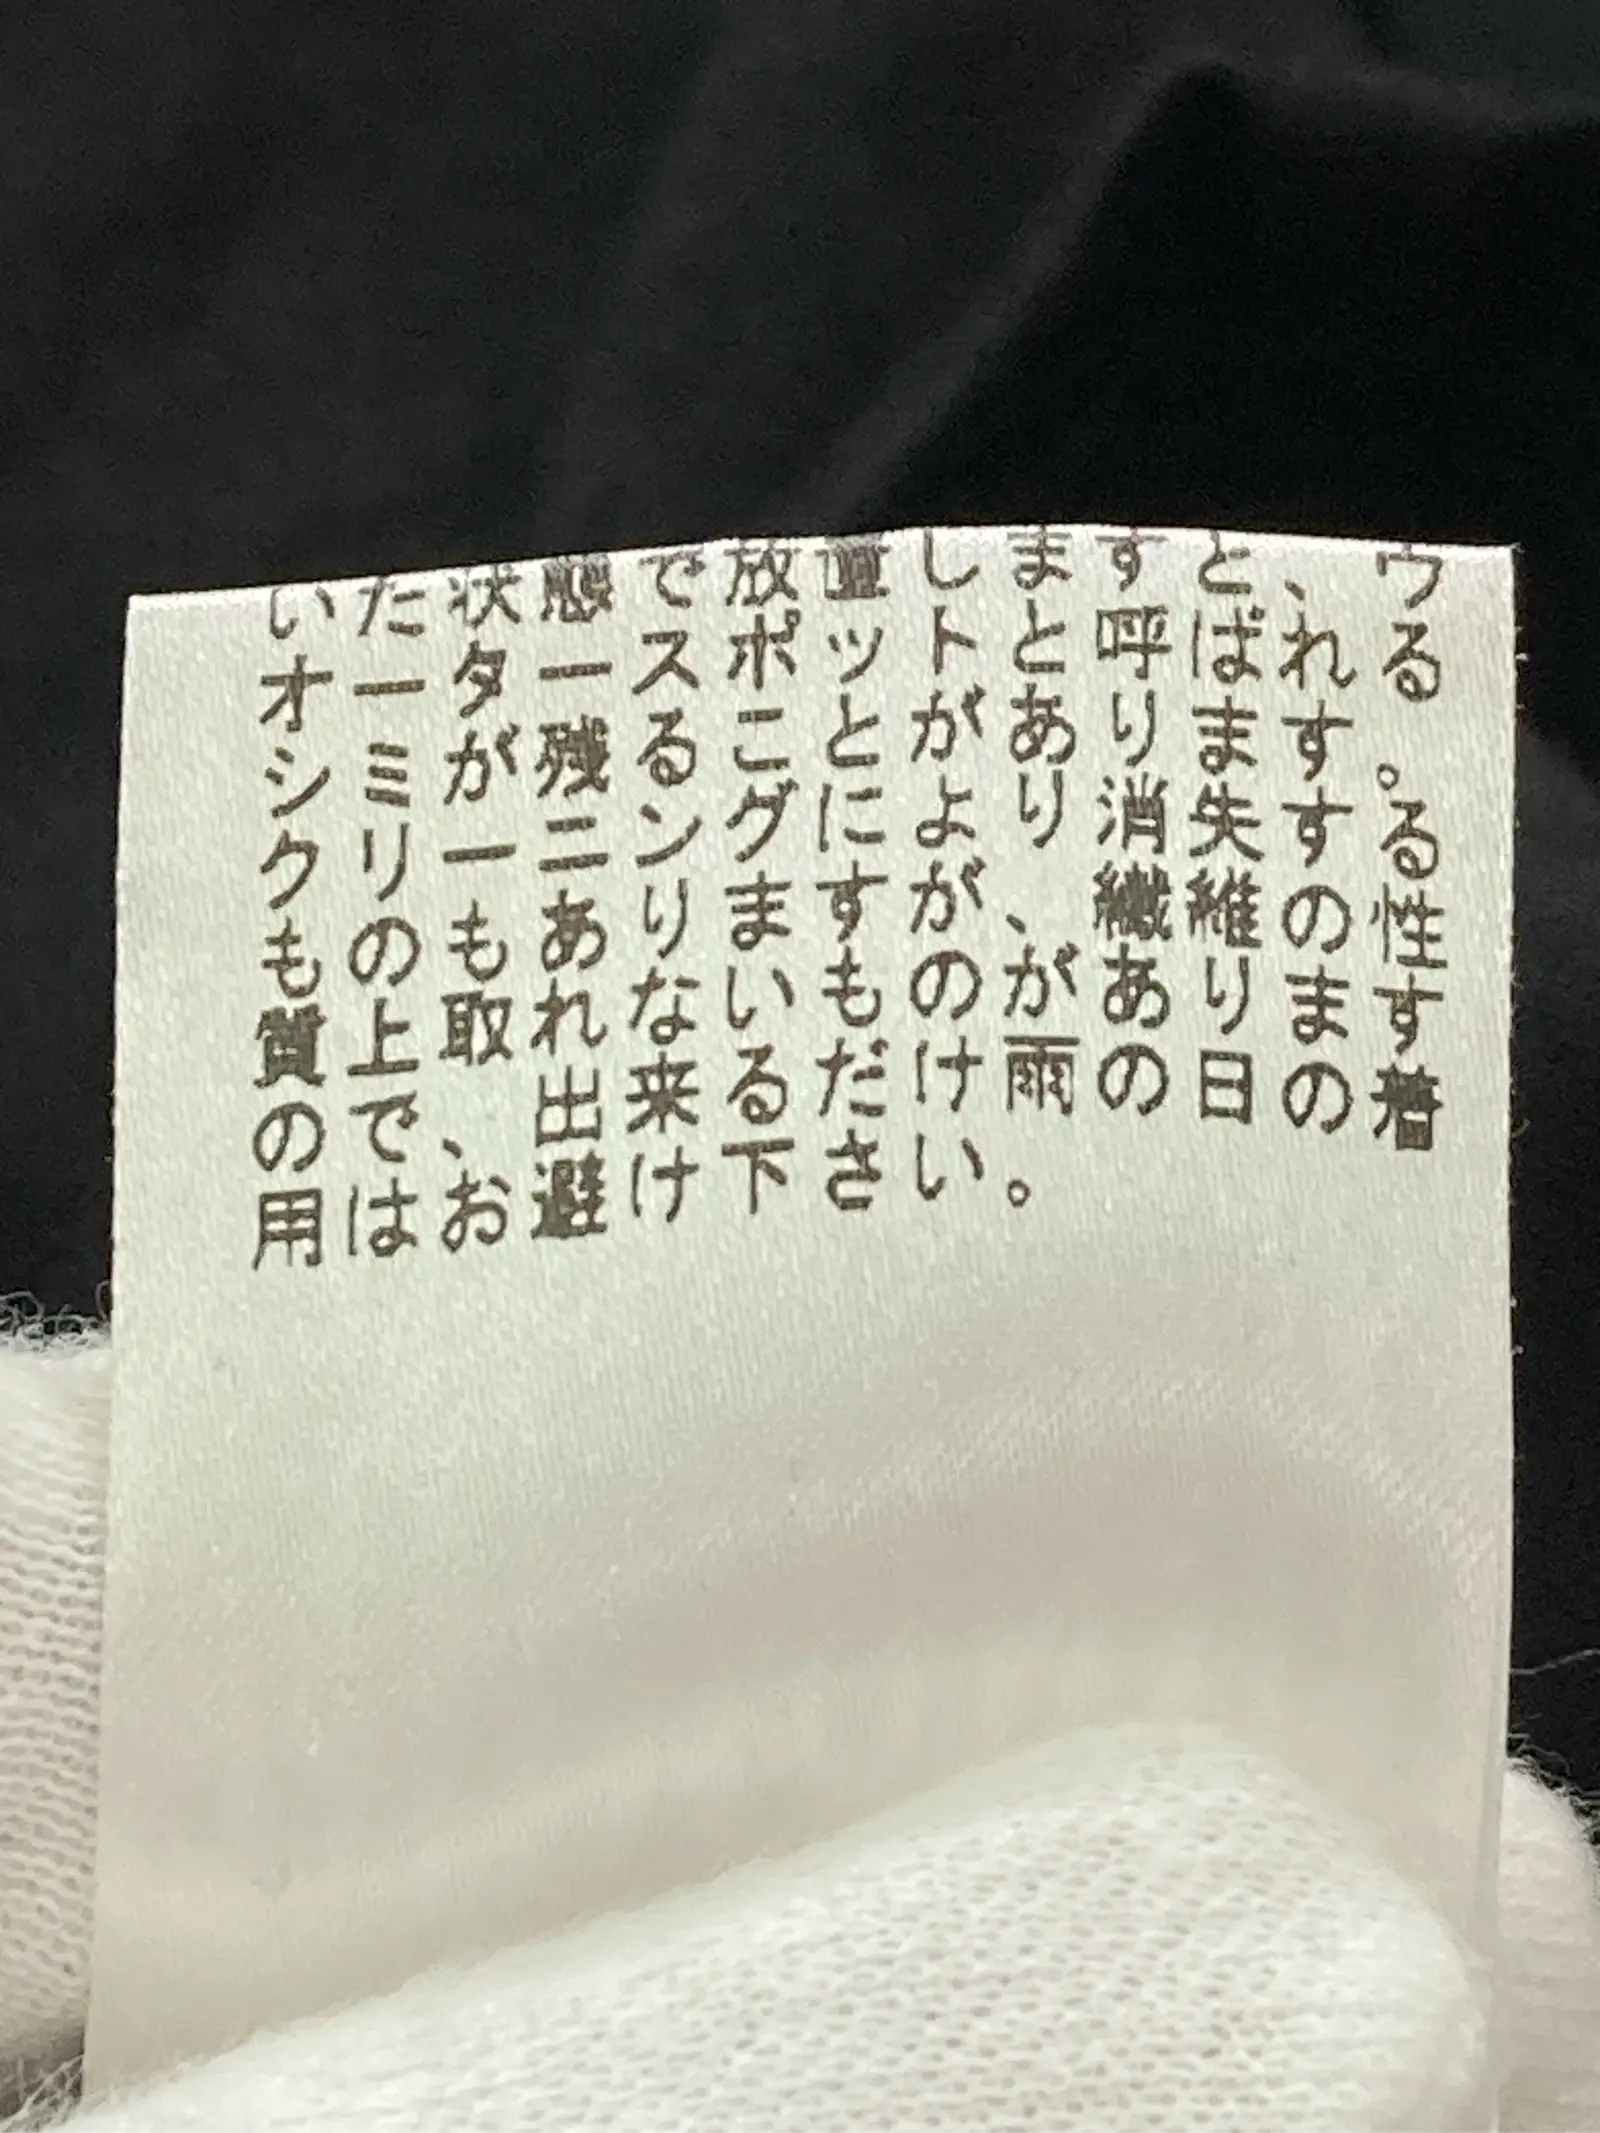 いた状態で放置しますと、ウ
オータースポットと呼ばれる
シミが残ることがあります。
クリーニングにより消失する
ものもありますが、繊維の性
質上取れないものがあります
ので、出来るだけ雨の日の着
用はお避け下さい。